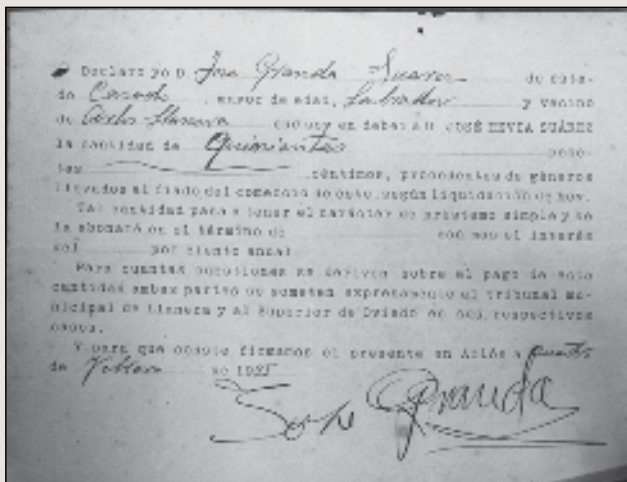 Declaro yo D. Jose Granda Suarez de esta-
do Casado, mayor de edad, Labrador y vecino
de Arlos-Llanera que soy en deber a D. JOSÉ HEVIA SUÁREZ
la cantidad de Quinientas pese-
tas céntimos, procedentes de géneros
llevados al fiado del comercio de este, según liquidación de hoy.
Tal cantidad pasa a tener el carácter de préstamo simple y se
la abonaré en el término de con más el interés
del por ciento anual
Para cuantas cuestiones se deriven sobre el pago de esta
cantidad ambas partes se someten expresamente al tribunal mu-
nicipal de Llanera y al Superior de Oviedo en sus respectivos
casos.
Y para que conste firmamos el presente en Arlós a
de de 1935
Jose Granda